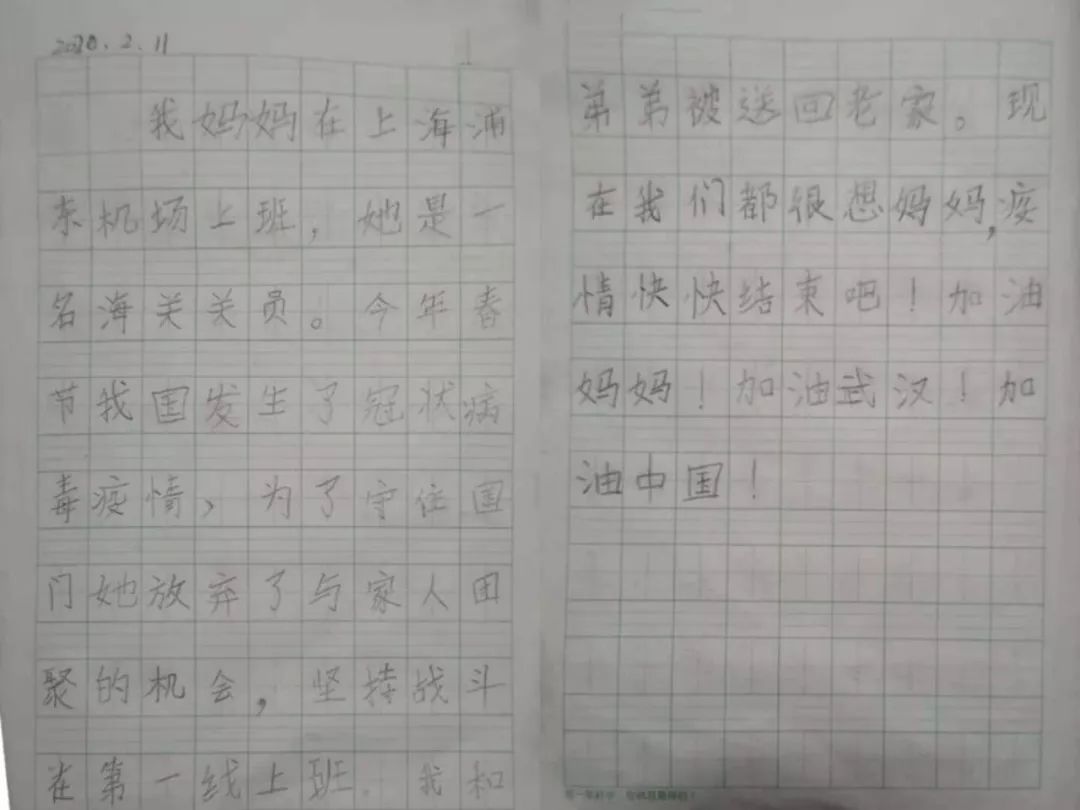 2020.2.11
我妈妈在上海浦
东机场上班，她是一
名海关关员。今年春
节我国发生了冠状病
毒疫情，为了守住国
门她放弃了与家人团
聚的机会，坚持战斗
在第一线上班.我和
弟弟被送回老家。现
在我们都很想妈妈,疫
情快快结束吧！加油
妈妈！加油武汉！加
油中国！